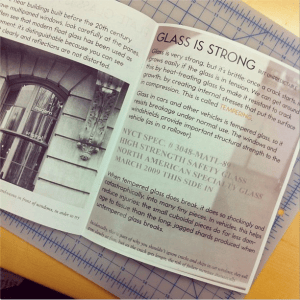 near buildings built before the 20th century
have multipaned windows, look carefully at the panes.
often see that modern float glass has been used as
cement; it's distinguishable because you can see
clearly and reflections are not distorted.
GLASS IS STRONG
Glass is very strong, but it's brittle: once a crack starts,
grows easily if the glass is in tension. We can get around
this by heat-treating glass to make it resistant to crack
growth, by creating internal stresses that put the surface
in compression. This is called TEMPERING.
Glass in cars and other vehicles is tempered glass, so it
resists breakage under normal use. The windows and
windshields provide important structural strength to the
vehicle (as in a rollover).
NYCT SPEC. # 3048-MATL-80
HIGH STRENGTH SAFETY GLASS
NORTH AMERICAN SPECIALTY GLASS
MARCH 2009 THIS SIDE IN
When tempered glass does break, it does so shockingly and
catastrophically, into many tiny pieces. In vehicles, this helps
reduce injuries; the small cuboid pieces do far less dam-
age to flesh than the long, jagged shards produced when
untempered glass breaks.